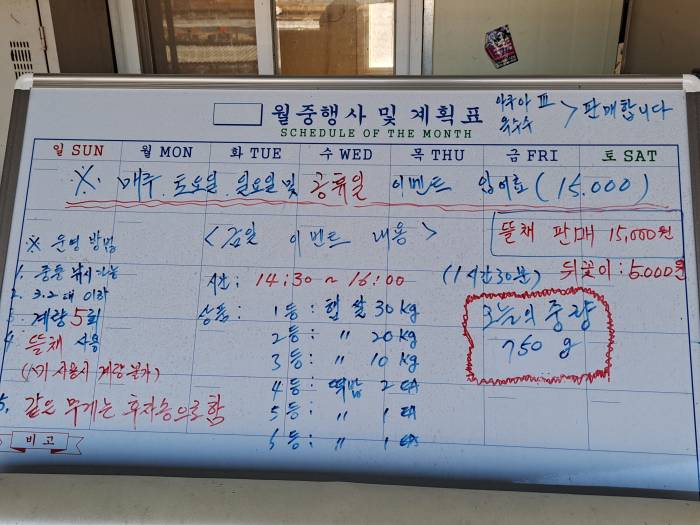 월중행사 및 계획표
SCHEDULE OF THE MONTH
아쿠아 III
옥수수 > 판매합니다
일 SUN 월 MON 화 TUE 수 WED 목 THU 금 FRI 토 SAT
※. 매주. 토요일. 일요일 및 공휴일 이벤트 입어료 (15.000)
※ 운영 방법
<금일 이벤트 내용>
뜰채 판매 15,000원
뒤꽂이 : 5.000원
1. 중층 낚시 가능
2. 3.2대 이하
3. 계량 5회
4. 뜰채 사용
사용시 계량불가)
5. 같은 무게는 후차승으로 함
시간 : 14:30 ~ 16:00 (1시간30분)
상품 : 1등 : 햅쌀 30kg
2등 : 〃 20kg
3등 : 〃 10kg
4등 : 떡밥 2 EA
5등 : 〃 1 EA
6등 : 〃 1 EA
오늘의 중량
750 g
비고